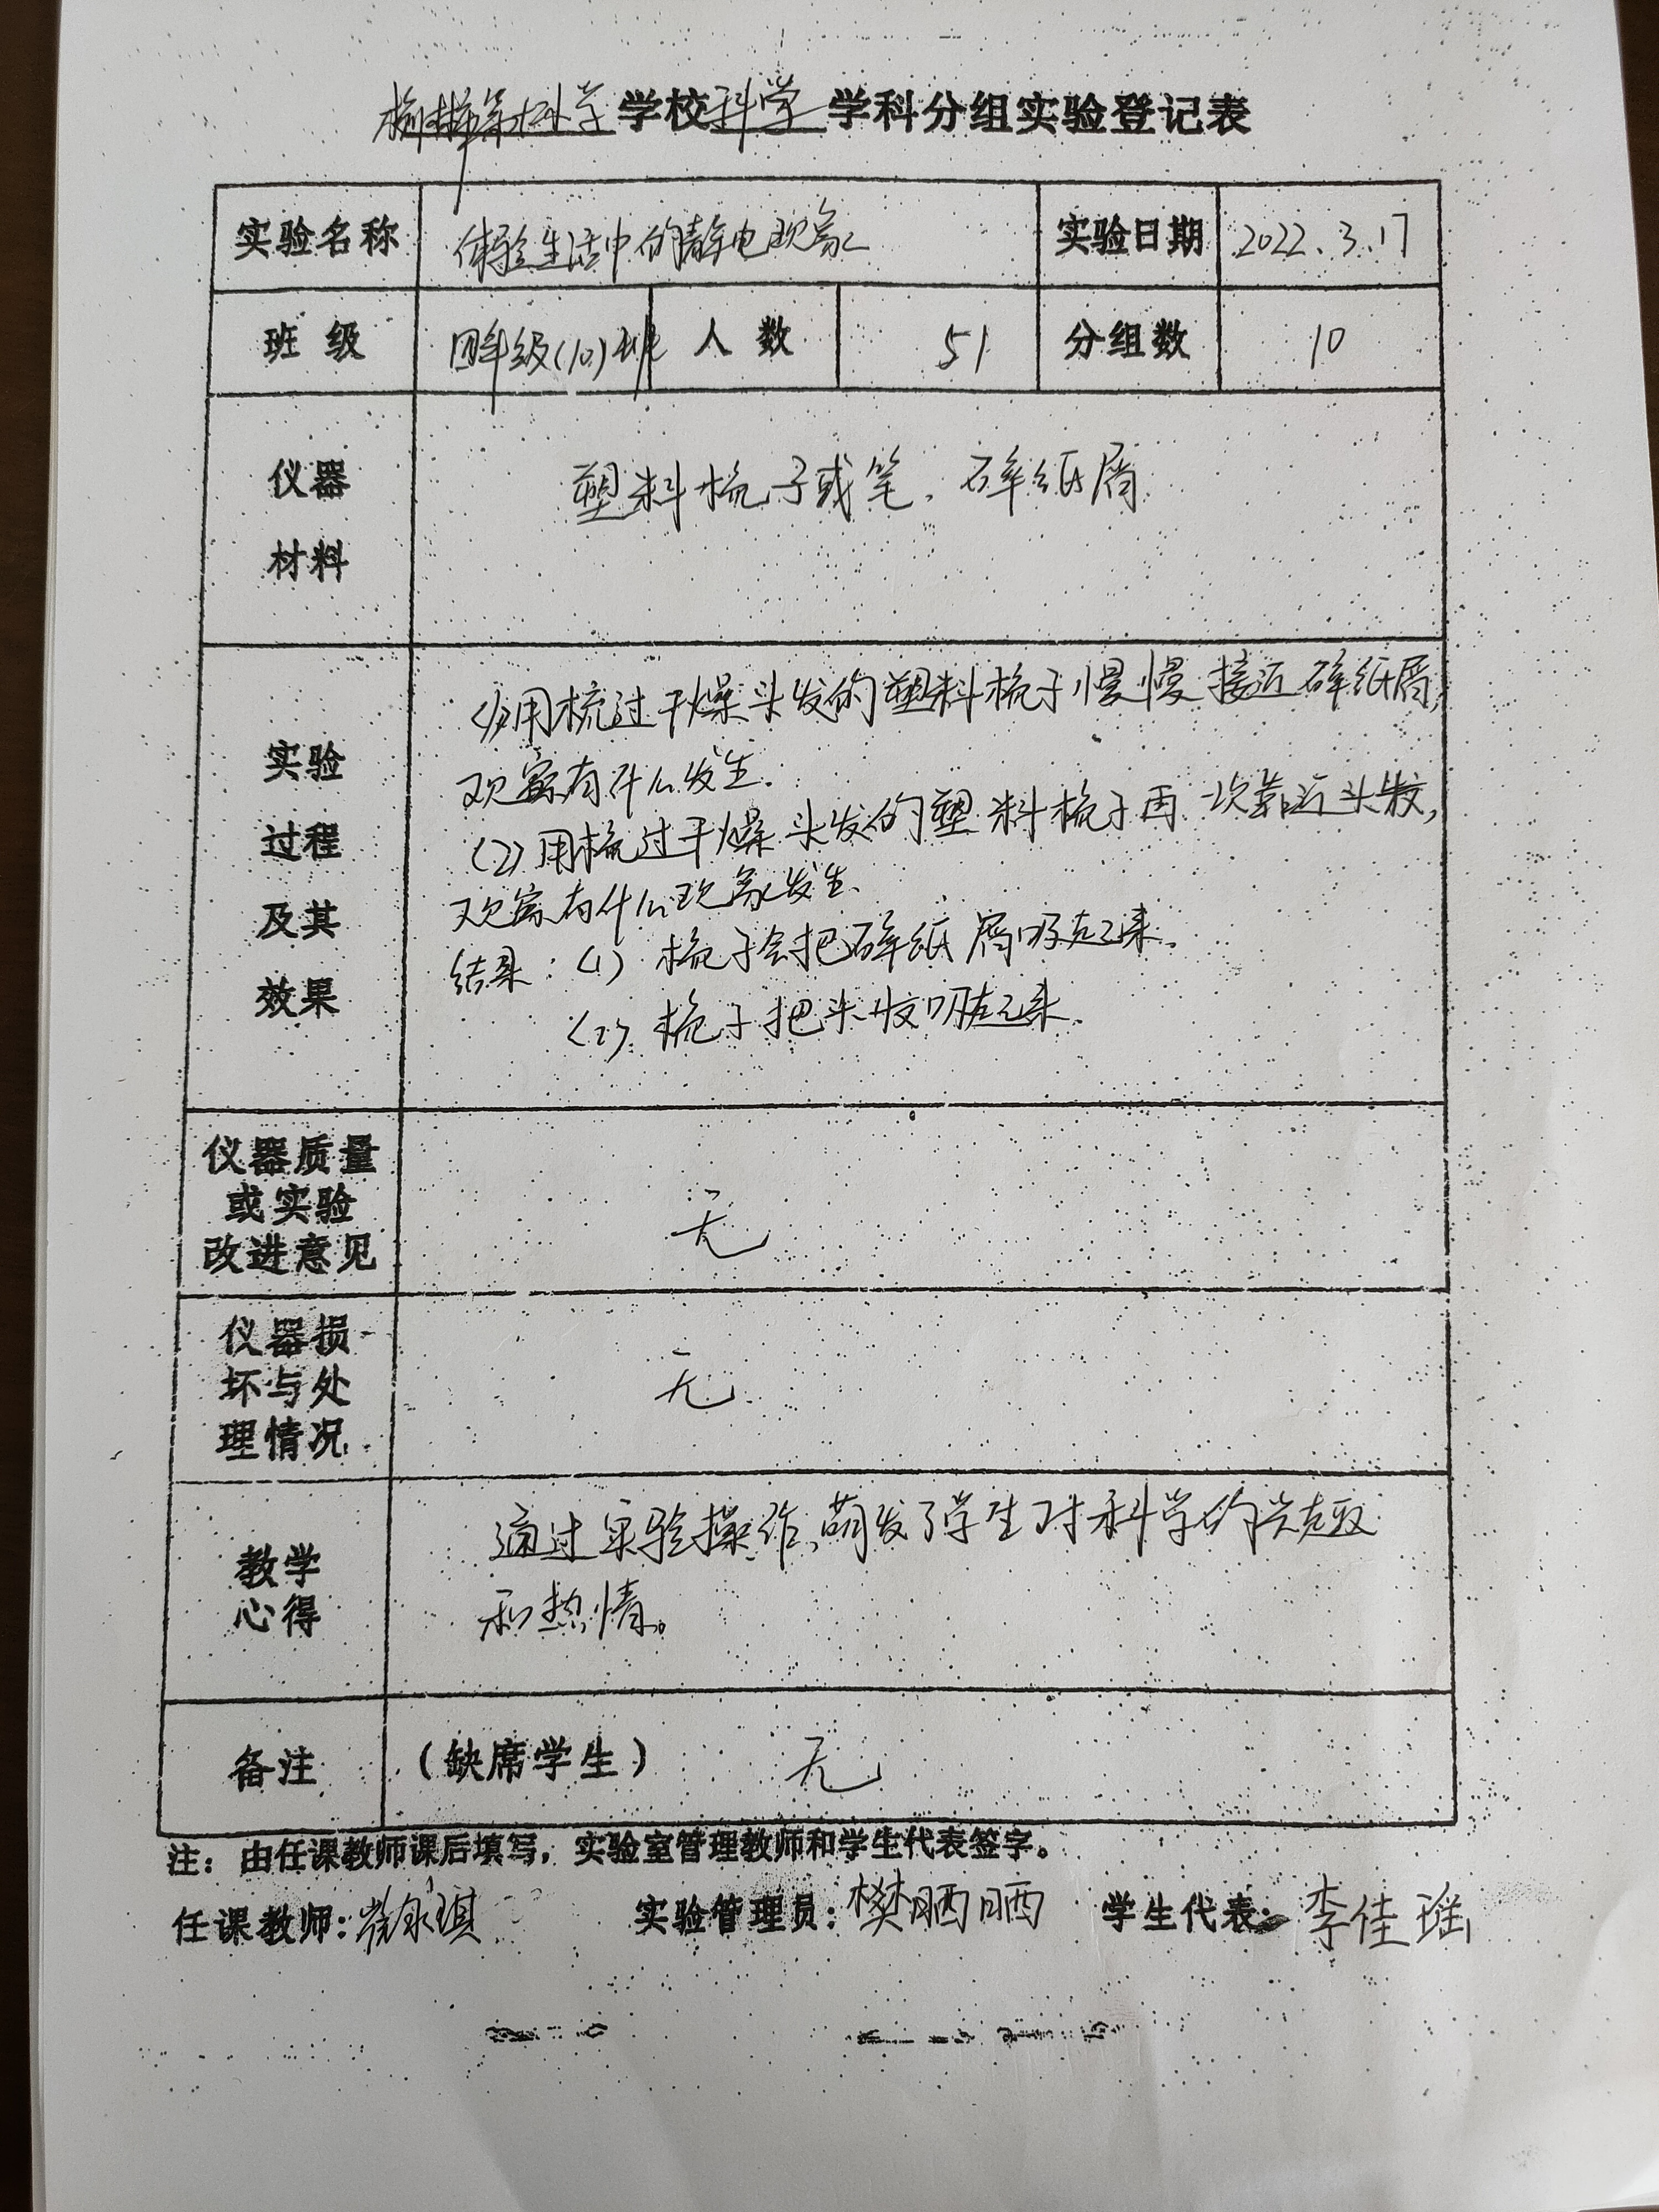 榆林第七小学学校科学学科分组实验登记表
实验名称 体验生活中的静电现象 实验日期 2022.3.17
班 级 四年级(10)班 人 数 51 分组数 10
仪器
材料
塑料梳子或笔、碎纸屑
实验
过程
及其
效果
(1)用梳过干燥头发的塑料梳子慢慢接近碎纸屑,
观察有什么发生.
(2)用梳过干燥头发的塑料梳子再一次靠近头发,
观察有什么现象发生.
结果:(1) 梳子会把碎纸屑吸起来.
(2) 梳子把头发吸起来.
仪器质量
或实验
改进意见
无
仪器损
坏与处
理情况
无
教学
心得
通过实验操作,萌发了学生对科学的兴趣
和热情。
备注 (缺席学生) 无
注:由任课教师课后填写,实验室管理教师和学生代表签字。
任课教师: 实验管理员:樊晒晒 学生代表:李佳瑶